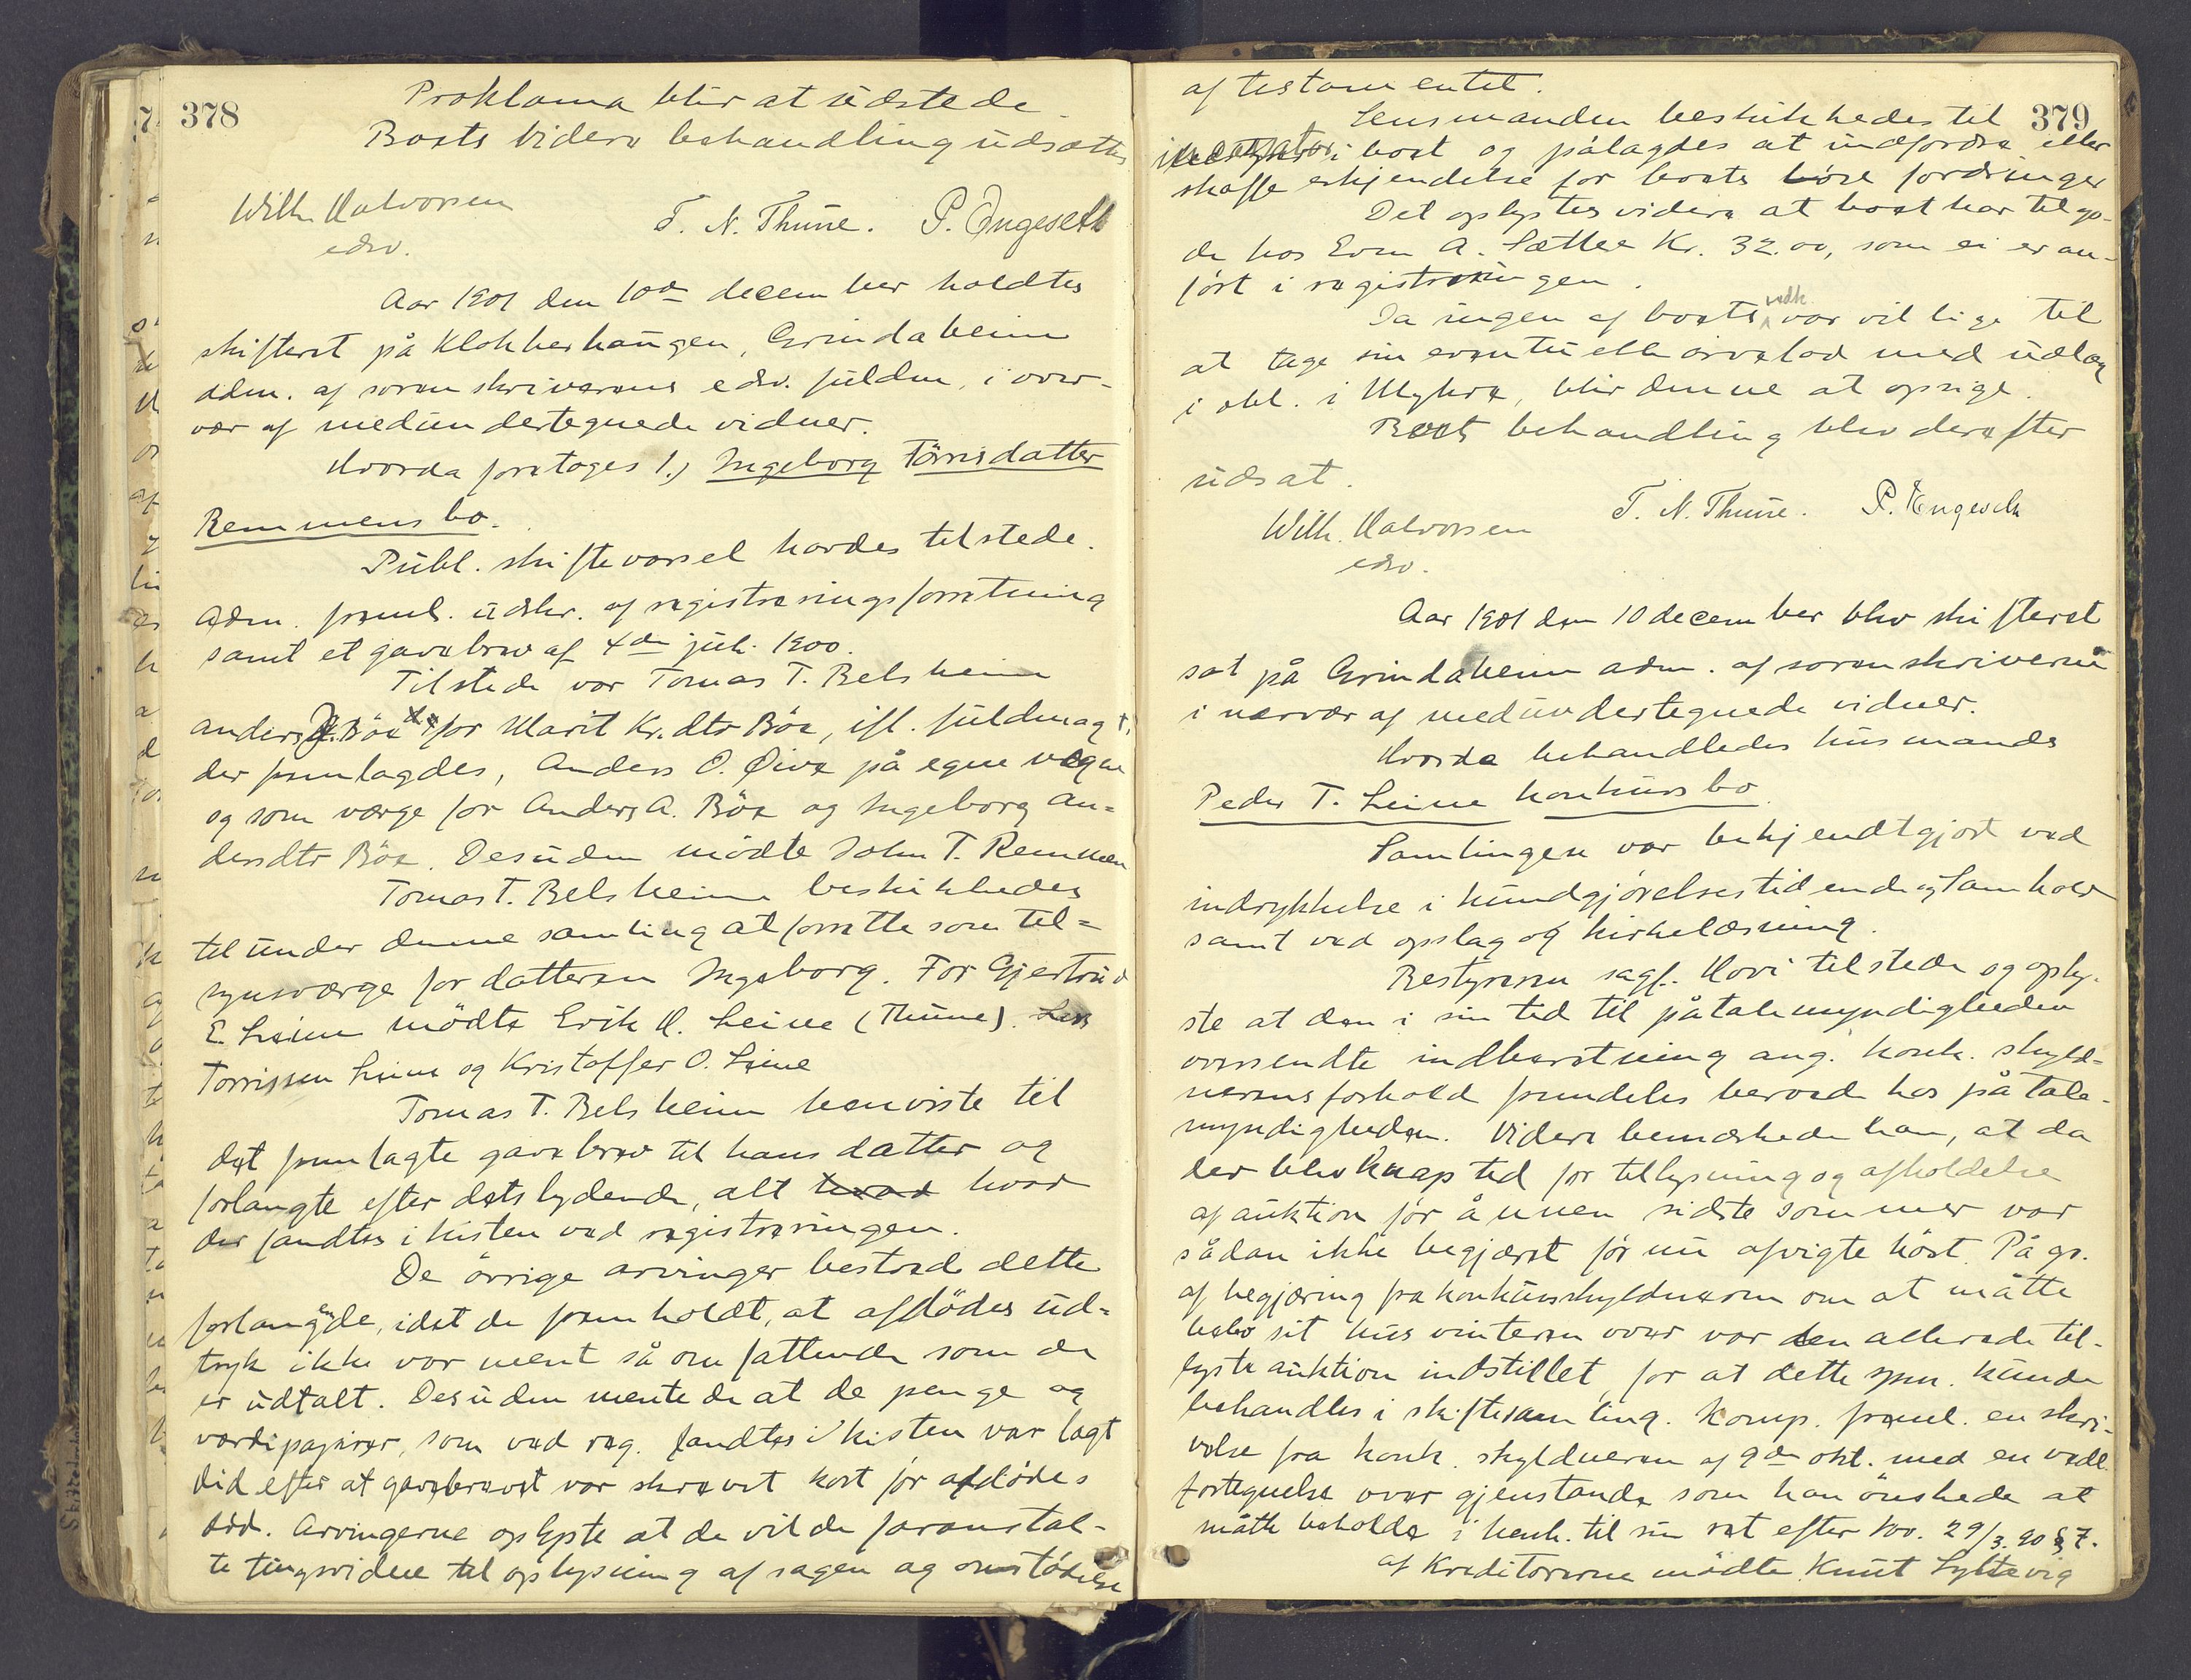 378
Proklama blir at udstede
Boets videre behandling udsættes
Wilh. Halvorsen
edsv.
T. N. Thune. P. Engeseth
Aar 1901 den 10de december holdtes
skifteret på Klokkerhaugen, Grindaheim
adm. af sorenskriverens edsv. fuldm. i over-
vær af medundertegnede vidner.
Hvorda foretoges 1.) Ingeborg Törrisdatter
Remmens bo.
Publ. skiftevarsel havdes tilstede.
Adm. freml. udskr. af registreringsforretning
samt et gavebrev af 4de juli 1900.
Tilstede var Tomas T. Belsheim
Anders Böe for Marit Kr.dtr Böe, ifl. fuldmagt,
der fremlagdes, Anders O. Øive på egne vegne
og som værge for Anders A. Böe og Ingeborg An-
dersdtr Böe. Desuden mödte John T. Remmen
Tomas T. Belsheim beskikkedes
til under denne samling at forrette som til-
synsværge for datteren Ingeborg. For Gjertrud
E. Leine mödte Erik H. Leine (Thune). Lars
Torrissen Leine og Kristoffer O. Leine
Tomas T. Belsheim henviste til
det fremlagte gavebrev til hans datter og
forlangte efter dets lydende, alt hvad hvad
der fandtes i kisten ved registreringen.
De övrige arvinger bestred dette
forlangende, idet de fremholdt, at afdödes ud-
tryk ikke var ment så omfattende som de
er udtalt. Desuden mente de at de penge og
værdipapirer, som ved reg. fandtes i kisten var lagt
did efter at gavebrevet var skrevet kort för afdödes
död. Arvingerne oplyste at de vilde foranstal-
te tingsvidne til oplysning af sagen og omstödelse
379
af testamentet.
Lensmanden beskikkedes til
inkassator i boet og pålagdes at indfordre eller
skaffe erkjendelse for boets löse fordringer
Det oplystes videre at boet har tilgo-
de hos Even A. Sætlee Kr. 32.00, som ei er an-
fört i registreringen.
Da ingen af boets vedk. var villige til
at tage sin eventuelle arvelod med udlæg
i obl. i Mykre, blir denne at opsige.
Boets behandling blev derefter
udsat.
Wilh. Halvorsen
edsv.
T. N. Thune. P. Engeseth
Aar 1901 den 10 december blev skifteret
sat på Grindaheim adm. af sorenskriveren
i nærvær af medundertegnede vidner.
Hvorda behandledes husmands
Peder T. Leine konkurs bo
Samlingen var bekjendtgjort ved
indrykkelse i kundgjörelsestidende og Samhold
samt ved opslag og kirkelæsning.
Bestyreren sagf. Hovi tilstede og oply-
ste at den i sin tid til påtalemyndigheden
oversendte indberetning ang. konk. skyld-
nerens forhold fremdeles beroede hos påtale-
myndigheden. Videre bemærkede han, at da
der blev knap tid for tillysning og afholdelse
af auktion för ånnen sidste sommer var
sådan ikke begjæret för nu afvigte höst. På gr.
af begjæring fra konkursskyldneren om at måtte
bebo sit hus vinteren over var den allerede til-
lyste auktion indstillet, for at dette spm. kunde
behandles i skiftesamling. Komp. freml. en skri-
velse fra konk. skyldneren af 9de okt. med en vedl.
fortegnelse over gjenstande som han önskede at
måtte beholde i henh. til sin ret efter lov. 29/3.90 § 7.
Af Kreditorerne mödte Knut Syltevig